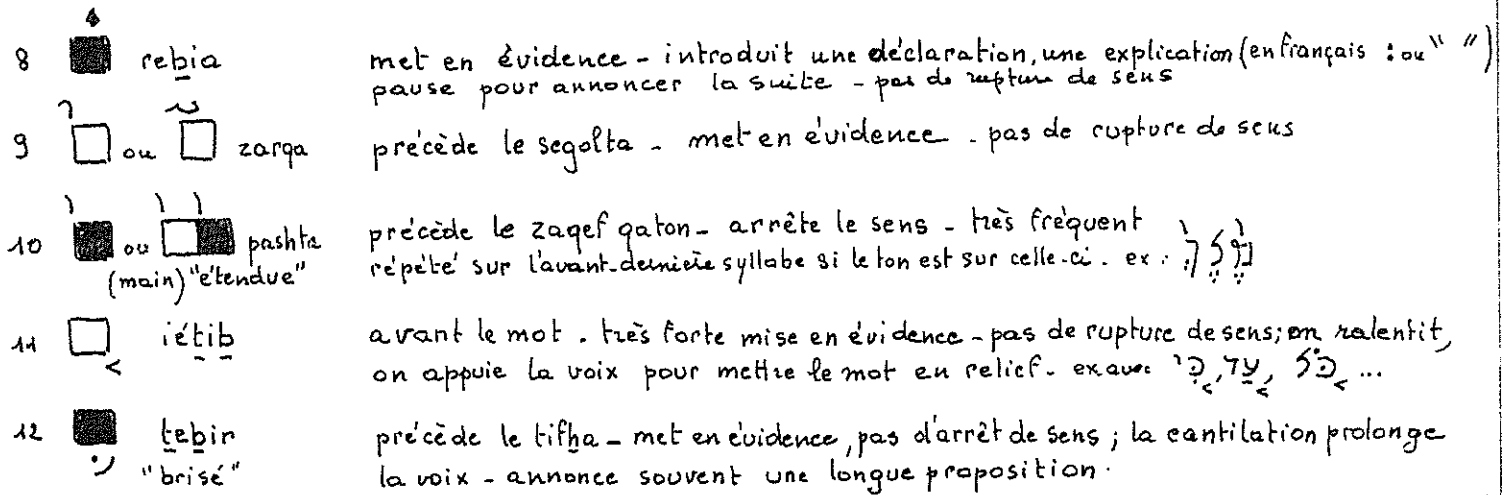 8 rebia met en évidence - introduit une déclaration, une explication (en français : ou " ")
pause pour annoncer la suite - pas de rupture de sens
9 ou zarqa précède le segolta - met en évidence - pas de rupture de sens
10 ou pashta précède le zaqef qaton - arrête le sens - très fréquent
(main) "étendue" répété sur l'avant-dernière syllabe si le ton est sur celle-ci. ex :
11 iétib avant le mot. très forte mise en évidence - pas de rupture de sens; on ralentit,
on appuie la voix pour mettre le mot en relief. ex avec כִּי, עַד, כֹּל ...
12 tebir précède le tifha - met en évidence, pas d'arrêt de sens ; la cantilation prolonge
"brisé" la voix - annonce souvent une longue proposition.